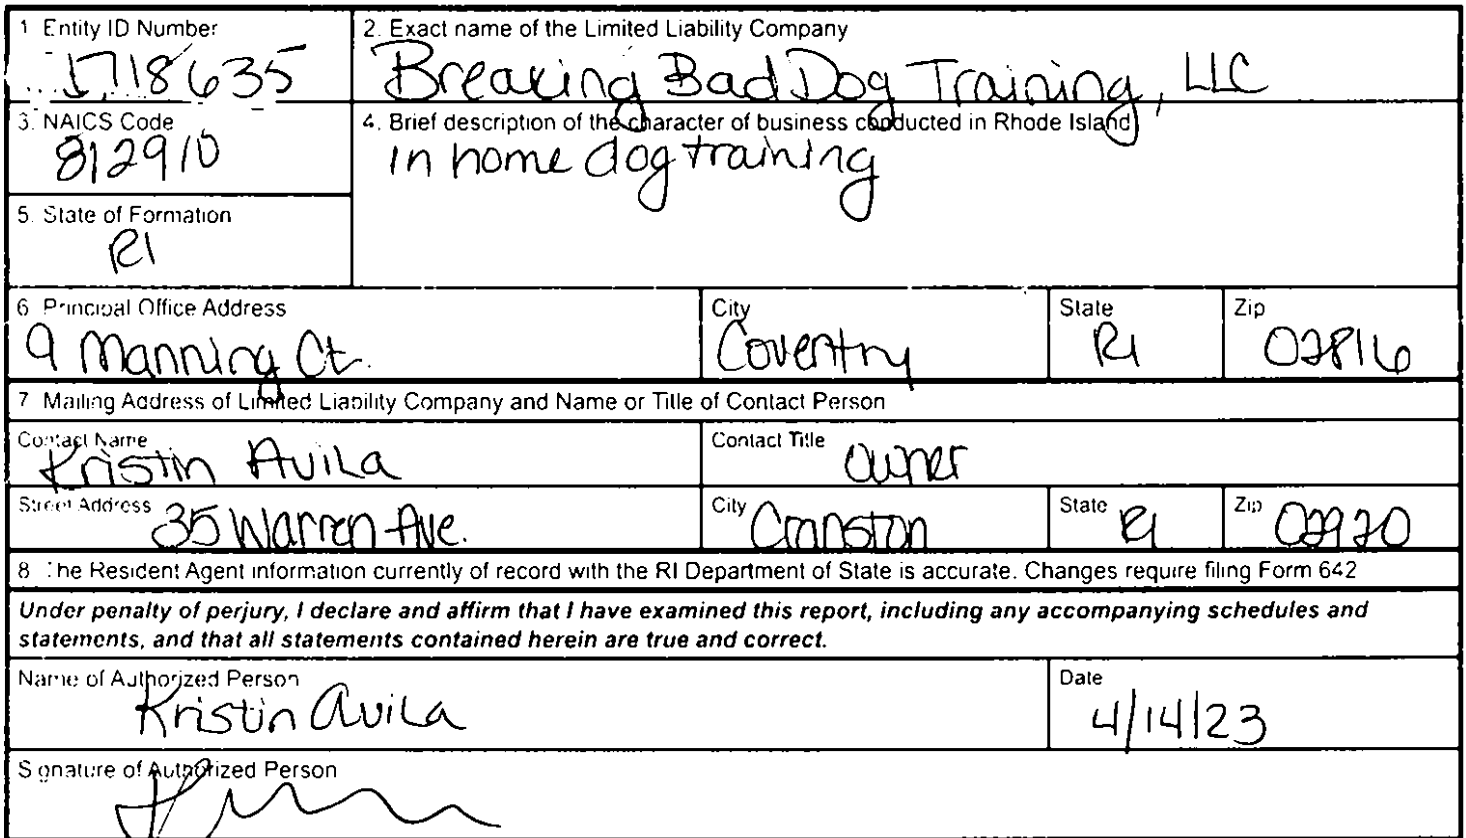 1. Entity ID Number
1718635
2. Exact name of the Limited Liability Company
Breaking Bad Dog Training, LLC
3. NAICS Code
812910
4. Brief description of the character of business conducted in Rhode Island
in home dog training
5. State of Formation
RI
6. Principal Office Address
9 Manning Ct.
City
Coventry
State
RI
Zip
02816
7. Mailing Address of Limited Liability Company and Name or Title of Contact Person
Contact Name
Kristin Avila
Contact Title
Owner
Street Address
35 Warren Ave.
City
Cranston
State
RI
Zip
02920
8. The Resident Agent information currently of record with the RI Department of State is accurate. Changes require filing Form 642
Under penalty of perjury, I declare and affirm that I have examined this report, including any accompanying schedules and
statements, and that all statements contained herein are true and correct.
Name of Authorized Person
Kristin Avila
Date
4/14/23
Signature of Authorized Person